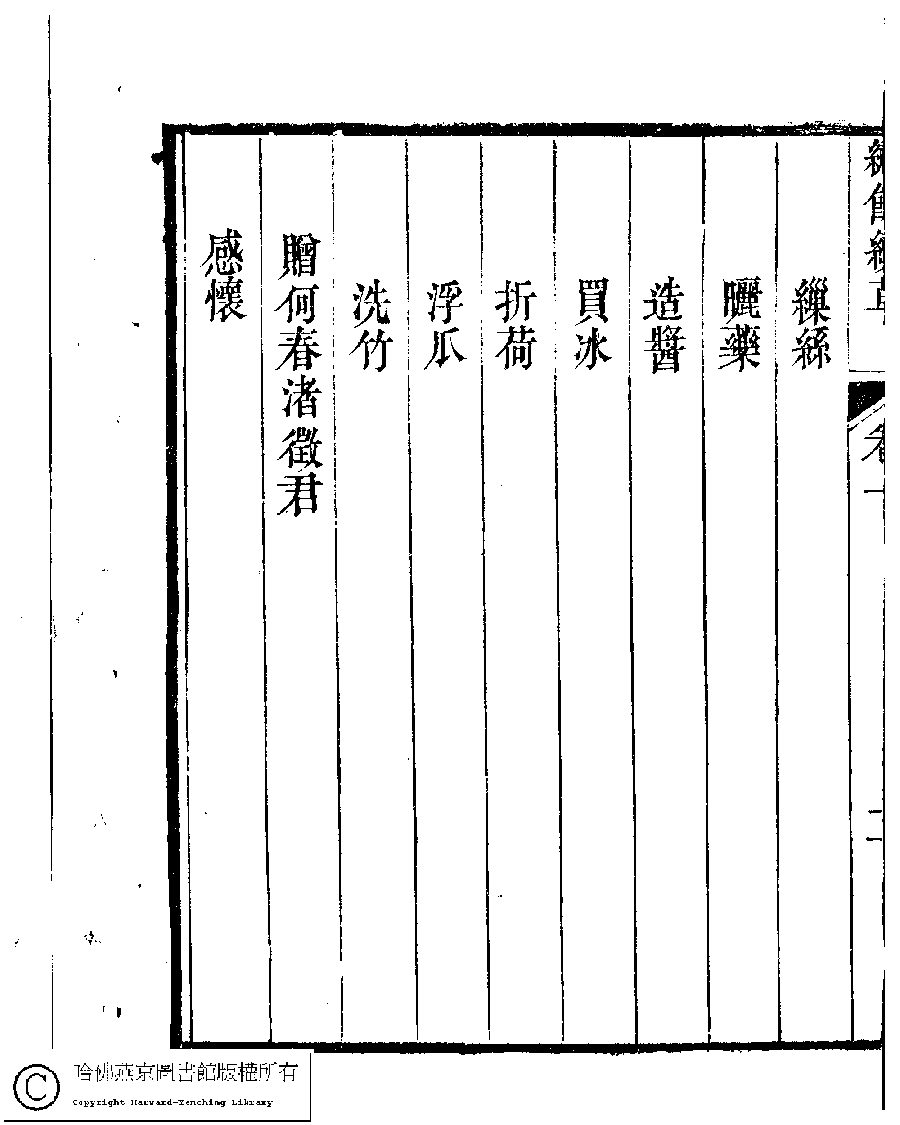 繅絲
曬藥
造醬
買冰
折荷
浮瓜
洗竹
贈何春渚徵君
感懷
二
哈佛燕京圖書館版權所有
Copyright Harvard-Yenching Library